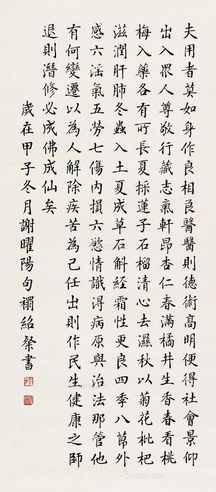 夫用者莫如身作良相良醫醫則德術高明便得社會景仰
出入畏人尊敬行藏志氣軒昂杏仁春滿橘井生香春看桃
梅入藥各有所長夏採蓮子石榴清心去濕秋以菊花枇杷
滋潤肝肺冬蟲入土夏成草石斛經霜性更良四季八節外
感六淫氣五勞七傷內損六慾情識得病原與治法那管他
有何變遷以為人解除疾苦為己任出則作民生健康之師
退則潛修必成佛成仙矣
歲在甲子冬月謝曜陽句禤紹燊書